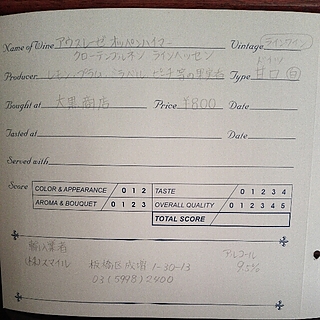 Name of Wine アウスレーゼ オッペンハイマー Vintage ラインワイン
クローテンブルネン ラインヘッセン ドイツ
Producer Type 甘口 白
Bought at 大黒商店 Price ¥800 Date
Tasted at Date
Served with
Score COLOR & APPEARANCE 0 1 2 TASTE 0 1 2 3 4
AROMA & BOUQUET 0 1 2 3 OVERALL QUALITY 0 1 2 3 4 5
TOTAL SCORE
輸入業者 アルコール
(株)スマイル 板橋区成増 1-30-13 9.5%
03(5998)2400